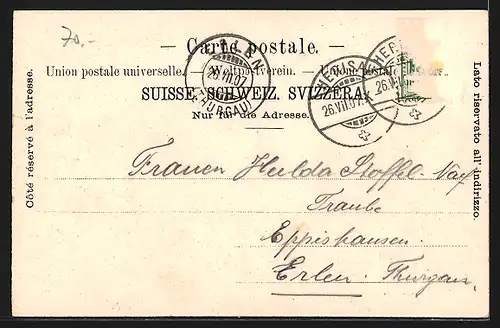 70.-
— Carte postale. —
Union postale universelle. — Weltpostverein. — Unione postale
SUISSE. SCHWEIZ. SVIZZERA.
Nur für die Adresse.
Côté réservé à l'adresse.
Lato riservato all' indirizzo.
ERLEN
26.VII.07
(THURGAU)
HERISAU
26.VII.07.
HER
26.VII
Frauen Hulda Stoffel-Naef
Traube
Eppishausen.
Erlen. Thurgau.